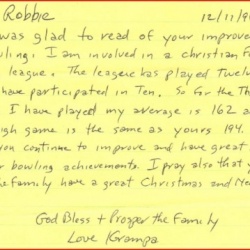 Robbie 12/11/9
was glad to read of your improve
ling. I am involved in a christian F
league. The league has played Twelve
have participated in Ten. So far the
I have played my average is 162 a
igh game is the same as yours 194.
you continue to improve and have great
r bowling achievements. I pray also that y
e family have a great Christmas and Ne
God Bless + Prosper the Family
Love Grampa